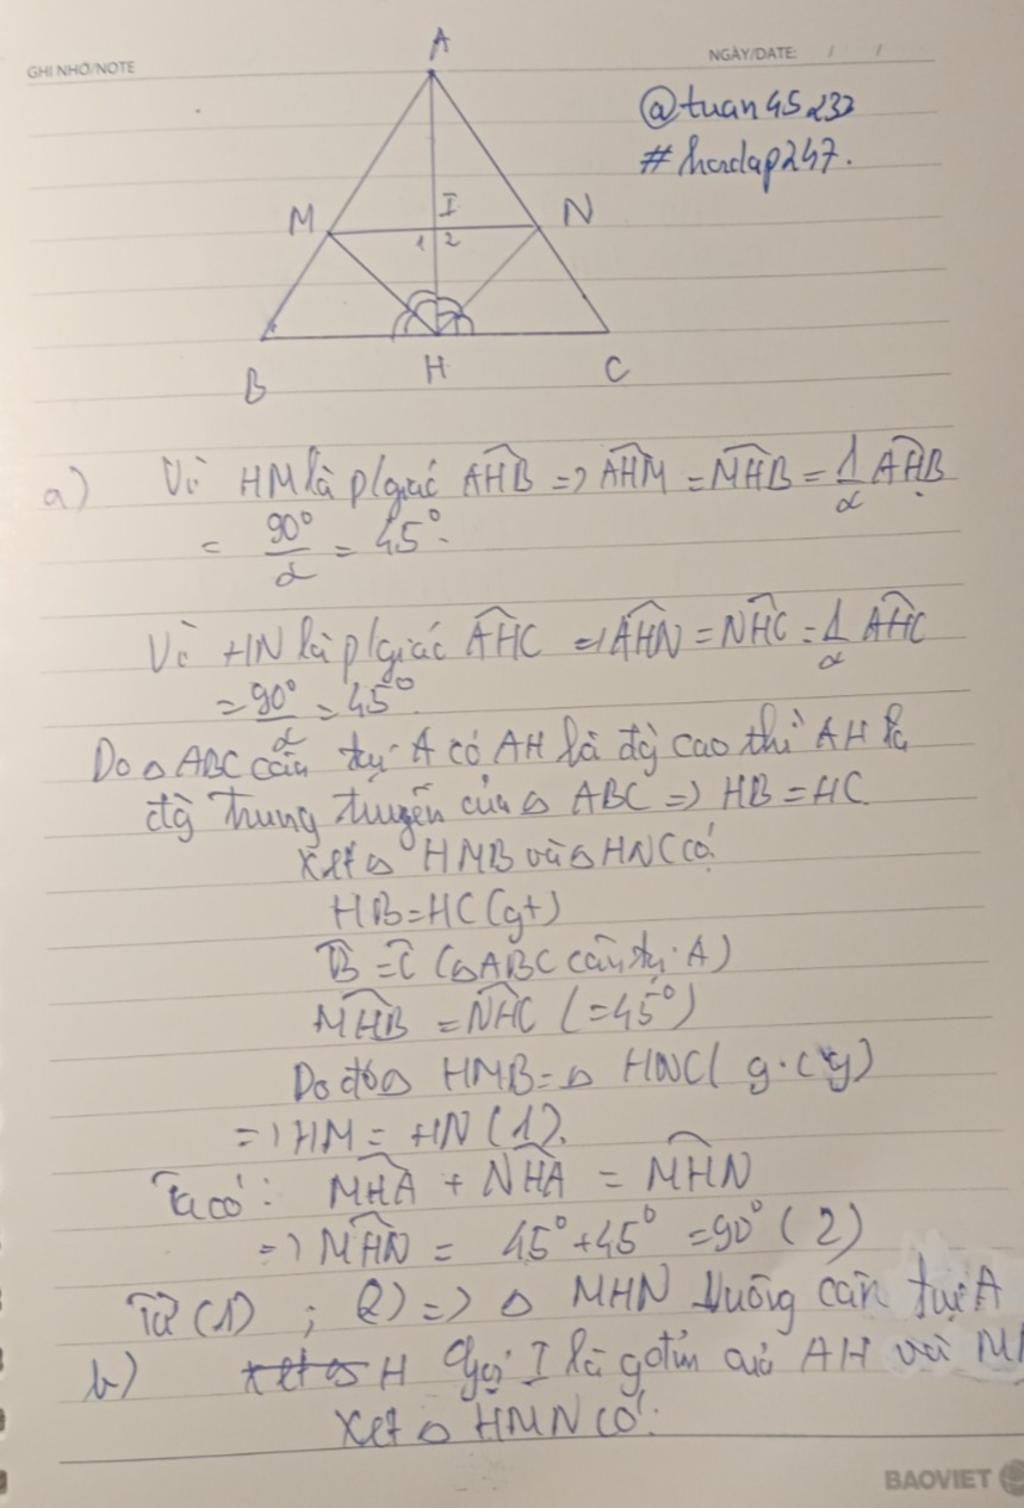 GHI NHỚ/NOTE
NGÀY/DATE: / /
@tuan45233
#hoidap247.
A
M
I
N
1 2
B
H
C
a) Vì HM là p/giác AHB => AHM = MHB = 1/2 AHB
= 90°/2 = 45°.
Vì HN là p/giác AHC => AHN = NHC = 1/2 AHC
= 90°/2 = 45°
Do △ABC cân tại A có AH là đg cao thì AH là
đg trung tuyến của △ ABC => HB = HC
Xét △ HMB và △ HNC có:
HB = HC (gt)
B = C (△ABC cân tại A)
MHB = NHC (= 45°)
Do đó △ HMB = △ HNC (g.c.g)
=> HM = HN (1).
Ta có: MHA + NHA = MHN
=> MHN = 45° + 45° = 90° (2)
Từ (1) ; (2) => △ MHN vuông cân tại A
b) H Gọi I là gđ AH và
Xét △ HMN có:
BAOVIET